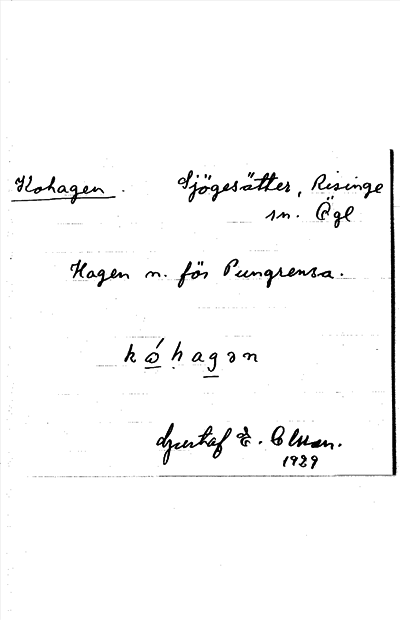 Kohagen. Sjögesätter, Risinge
sn. Ögl
Hagen n. för Pungrensa.
kóhagən
Gustaf E. Olsson.
1929